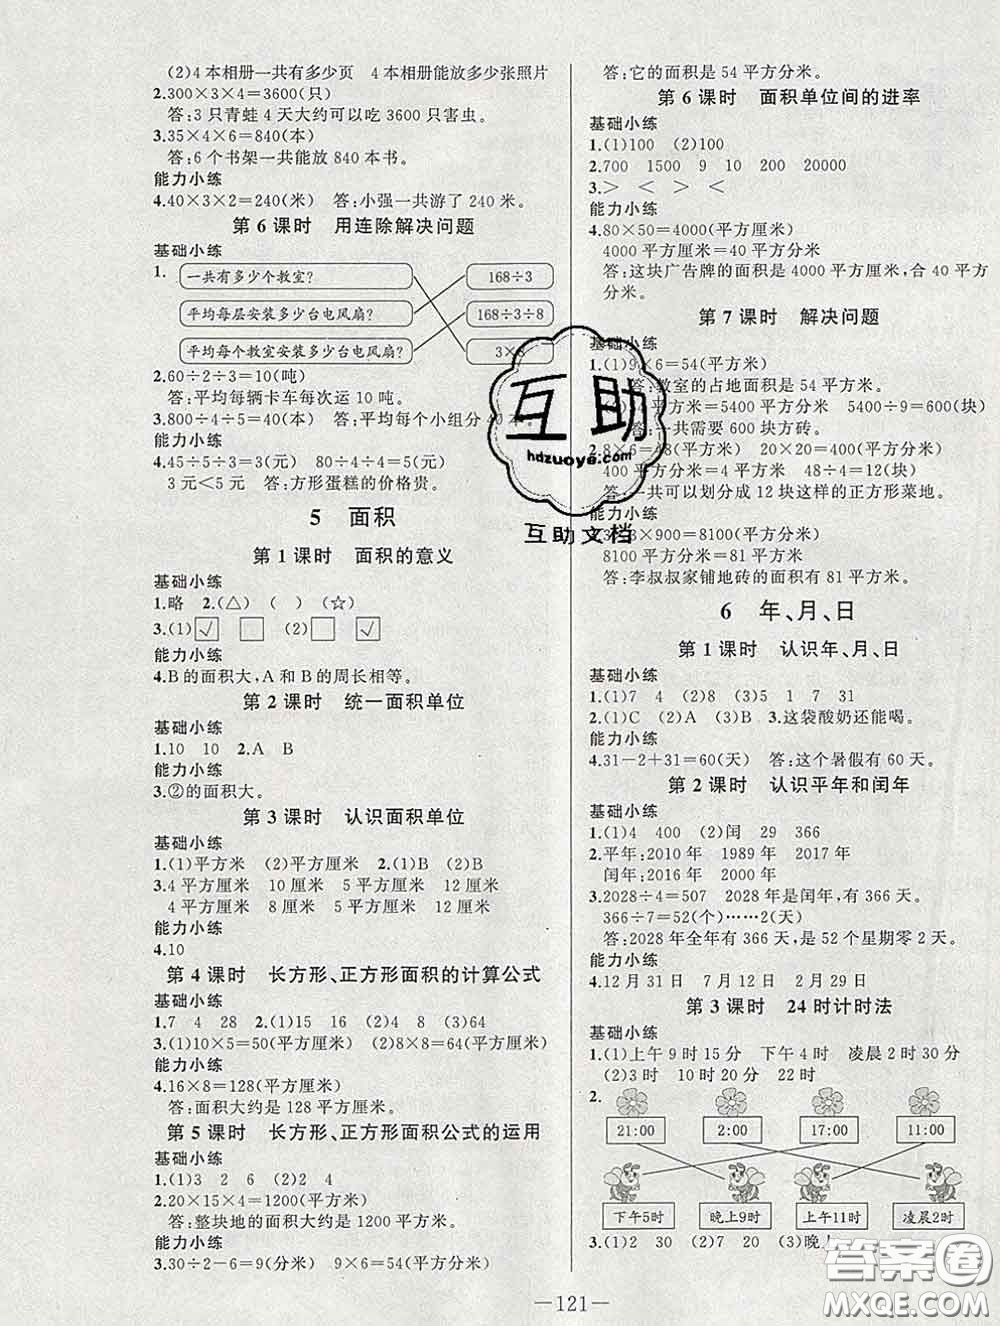 (2)4本相册一共有多少页 4本相册能放多少张照片
2.300×3×4=3600(只)
答:3只青蛙4天大约可以吃3600只害虫。
3.35×4×6=840(本)
答:6个书架一共能放840本书。
能力小练
4.40×3×2=240(米) 答:小强一共游了240米。
第6课时 用连除解决问题
基础小练
1. 一共有多少个教室? 168÷3
平均每层安装多少台电风扇? 168÷3÷8
平均每个教室安装多少台电风扇? 3×8
2.60÷2÷3=10(吨)
答:平均每辆卡车每次运10吨。
3.800÷4÷5=40(本) 答:平均每个小组分40本。
能力小练
4.45÷5÷3=3(元) 80÷4÷4=5(元)
3元<5元 答:方形蛋糕的价格贵。
5 面积
第1课时 面积的意义
基础小练
1.略 2.(△) ( ) (☆)
3.(1)☑ □ (2)□ ☑
能力小练
4.B的面积大,A和B的周长相等。
第2课时 统一面积单位
基础小练
1.10 10 2.A B
能力小练
3.②的面积大。
第3课时 认识面积单位
基础小练
1.(1)平方米 (2)平方厘米 2.(1)B (2)B
3.4平方厘米 10厘米 5平方厘米 12厘米
4平方厘米 8厘米 5平方厘米 12厘米
能力小练
4.10
第4课时 长方形、正方形面积的计算公式
基础小练
1.7 4 28 2.(1)15 16 (2)4 8 (3)64
3.(1)10×5=50(平方厘米) (2)8×8=64(平方厘米)
能力小练
4.16×8=128(平方厘米)
答:面积大约是128平方厘米。
第5课时 长方形、正方形面积公式的运用
基础小练
1.(1)3 2 6 (2)2 4
2.20×15×4=1200(平方米)
答:整块地的面积大约是1200平方米。
能力小练
3.30÷2-6=9(分米) 9×6=54(平方分米)
答:它的面积是54平方分米。
第6课时 面积单位间的进率
基础小练
1.(1)100 (2)100
2.700 1500 9 10 200 20000
3.> < > <
能力小练
4.80×50=4000(平方厘米)
4000平方厘米=40平方分米
答:这块广告牌的面积是4000平方厘米,合40平方
分米。
第7课时 解决问题
基础小练
1.(1)9×6=54(平方米)
答:教室的占地面积是54平方米。
平方米=5400平方分米 5400÷9=600(块)
答:一共需要600块方砖。
2.8×6=48(平方米) 20×20=400(平方分米)
400平方分米=4平方米 48÷4=12(块)
答:一共可以划分成12块这样的正方形菜地。
能力小练
3×900=8100(平方分米)
8100平方分米=81平方米
答:李叔叔家铺地砖的面积有81平方米。
6 年、月、日
第1课时 认识年、月、日
基础小练
1.(1)7 4 (2)8 (3)5 1 7 31
2.(1)C (2)A (3)B 3.这袋酸奶还能喝。
能力小练
4.31-2+31=60(天) 答:这个暑假有60天。
第2课时 认识平年和闰年
基础小练
1.(1)4 400 (2)闰 29 366
2.平年:2010年 1989年 2017年
闰年:2016年 2000年
3.2028÷4=507 2028年是闰年,有366天。
366÷7=52(个)……2(天)
答:2028年全年有366天,是52个星期零2天。
能力小练
4.12月31日 7月12日 2月29日
第3课时 24时计时法
基础小练
1.(1)上午9时15分 下午4时 凌晨2时30分
(2)3时 10时20分 22时
2.
21:00 2:00 17:00 11:00
下午5时 晚上9时 上午11时 凌晨2时
3.(1)2 30 (2)7 20 (3)晚上
—121—
互助
hdzuoye.com
互助文档
答案圈
MXQE.COM